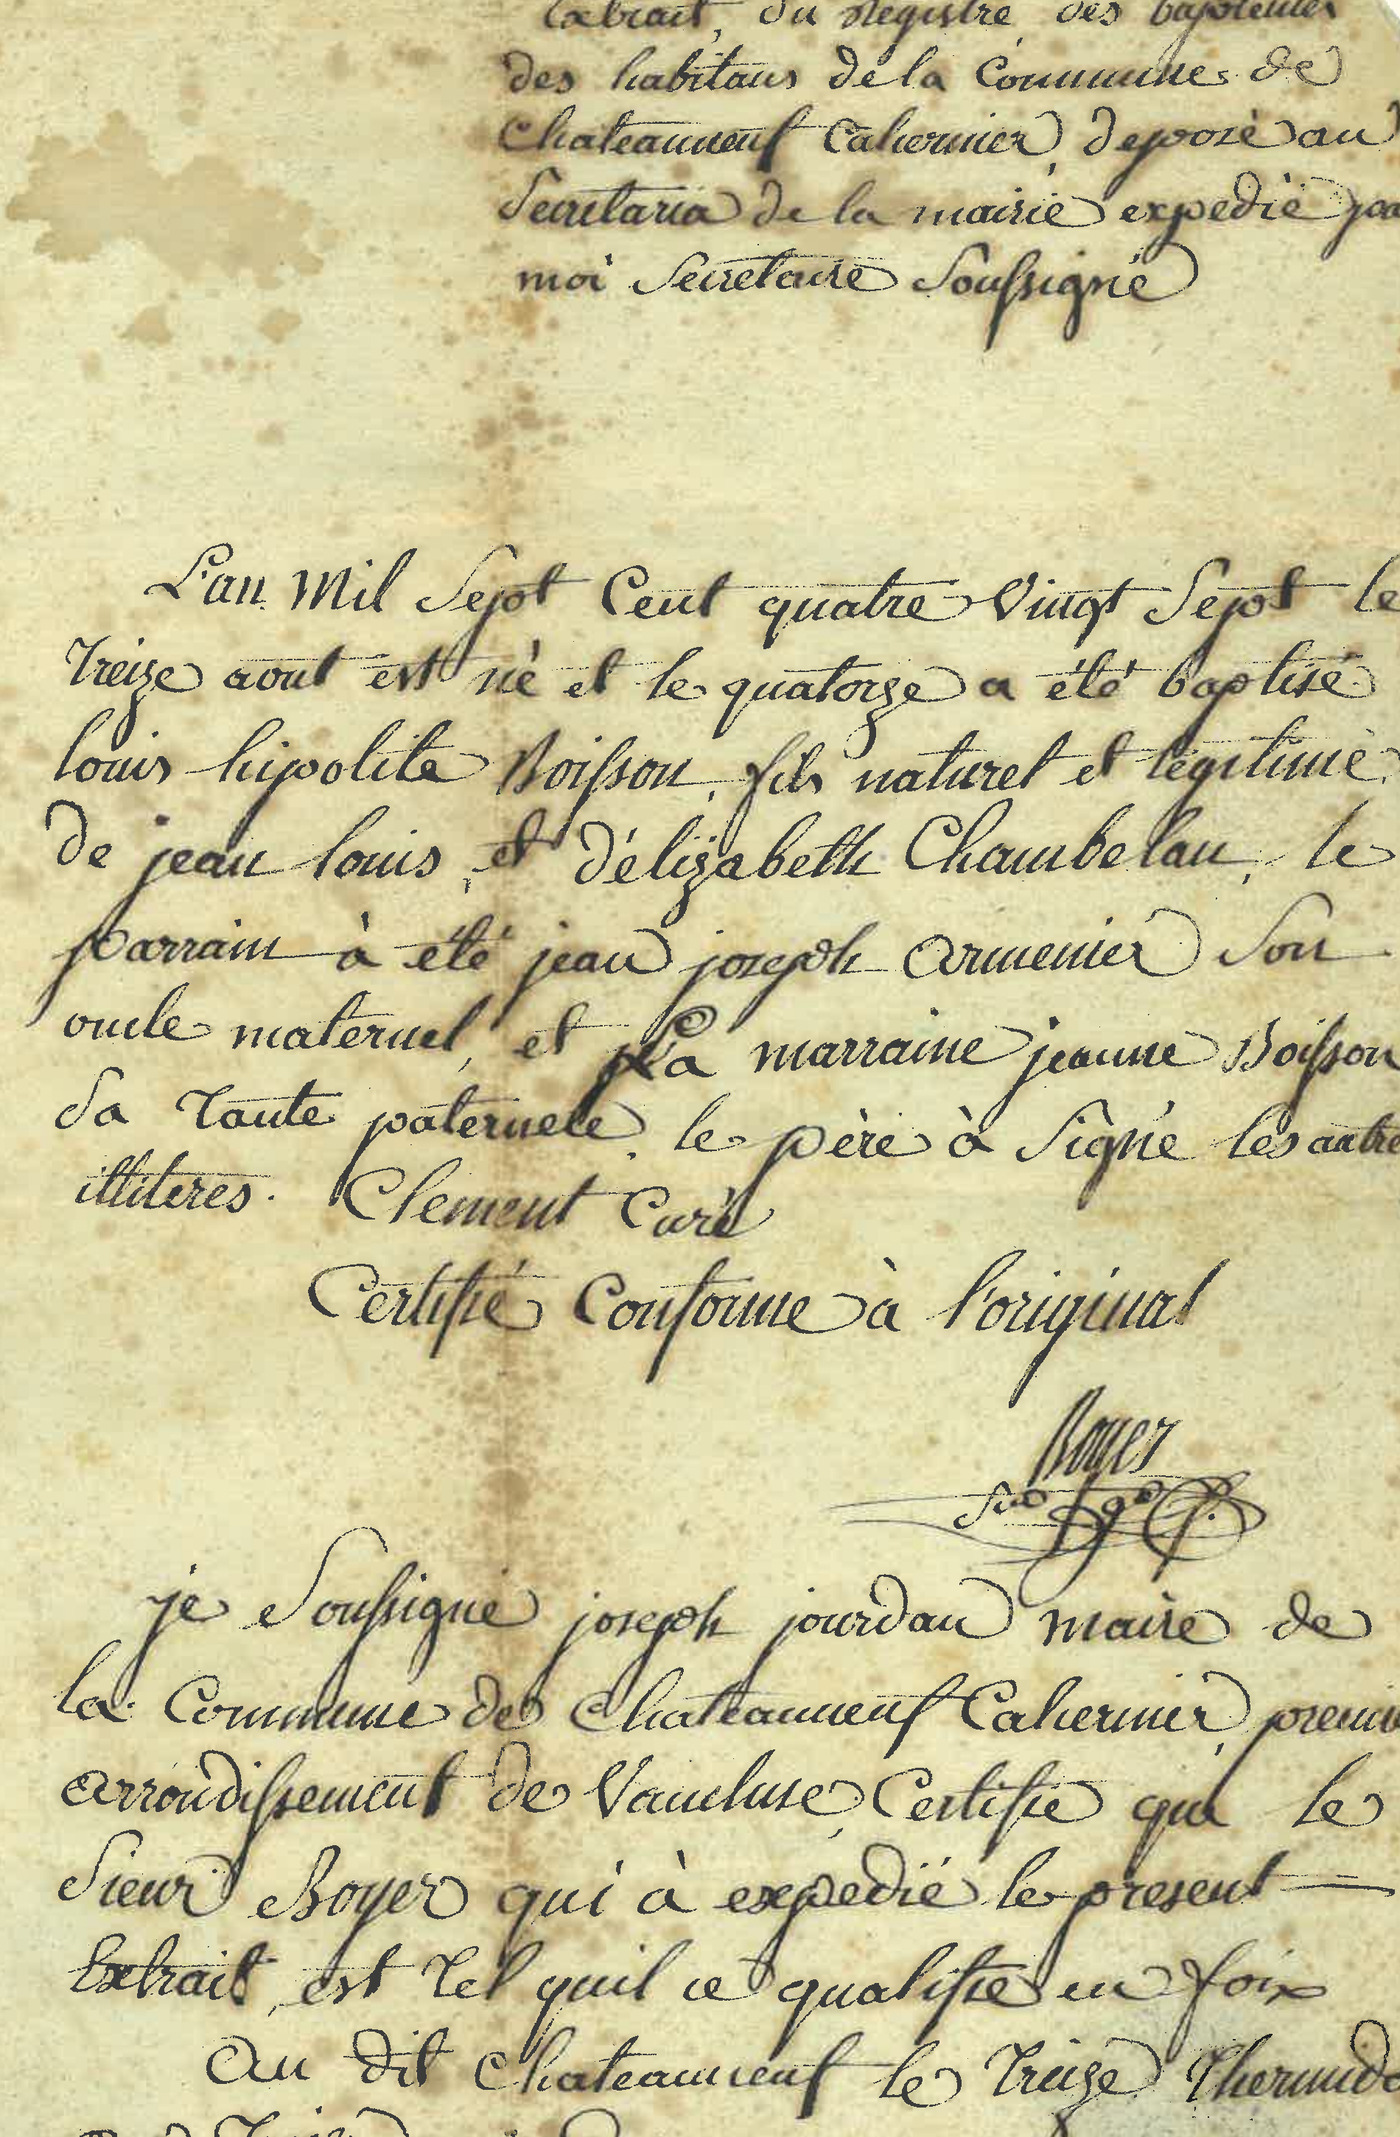 Extrait, du Registre des baptemes
des habitans de la Commune de
Chateauneuf Calcernier, deposé au
Secretaria de la mairie expedié par
moi Secretaire Soussigné
L'an Mil Sept Cent quatre Vingt Sept le
Treize aout est né et le quatorze a été baptisé
louis hipolite Boisson, fils naturel et légitime
de jean louis, et d'élizabeth Chambelau, le
parrain à été jean joseph armenier Son
oncle maternel, et La marraine jeanne Boisson
Sa Tante paternele, le père à Signé les autre
illiteres. Clement Curé
Certifié Conforme à l'original
Boyer
je Soussigné joseph jourdan maire de
la Commune de Chateauneuf Calcernier, premie
arrondissement de Vaucluse, Certifie que le
Sieur Boyer qui à expedié le present
Extrait, est Tel quil ce qualifie en foix
Au dit Chateauneuf le Treize Thermido